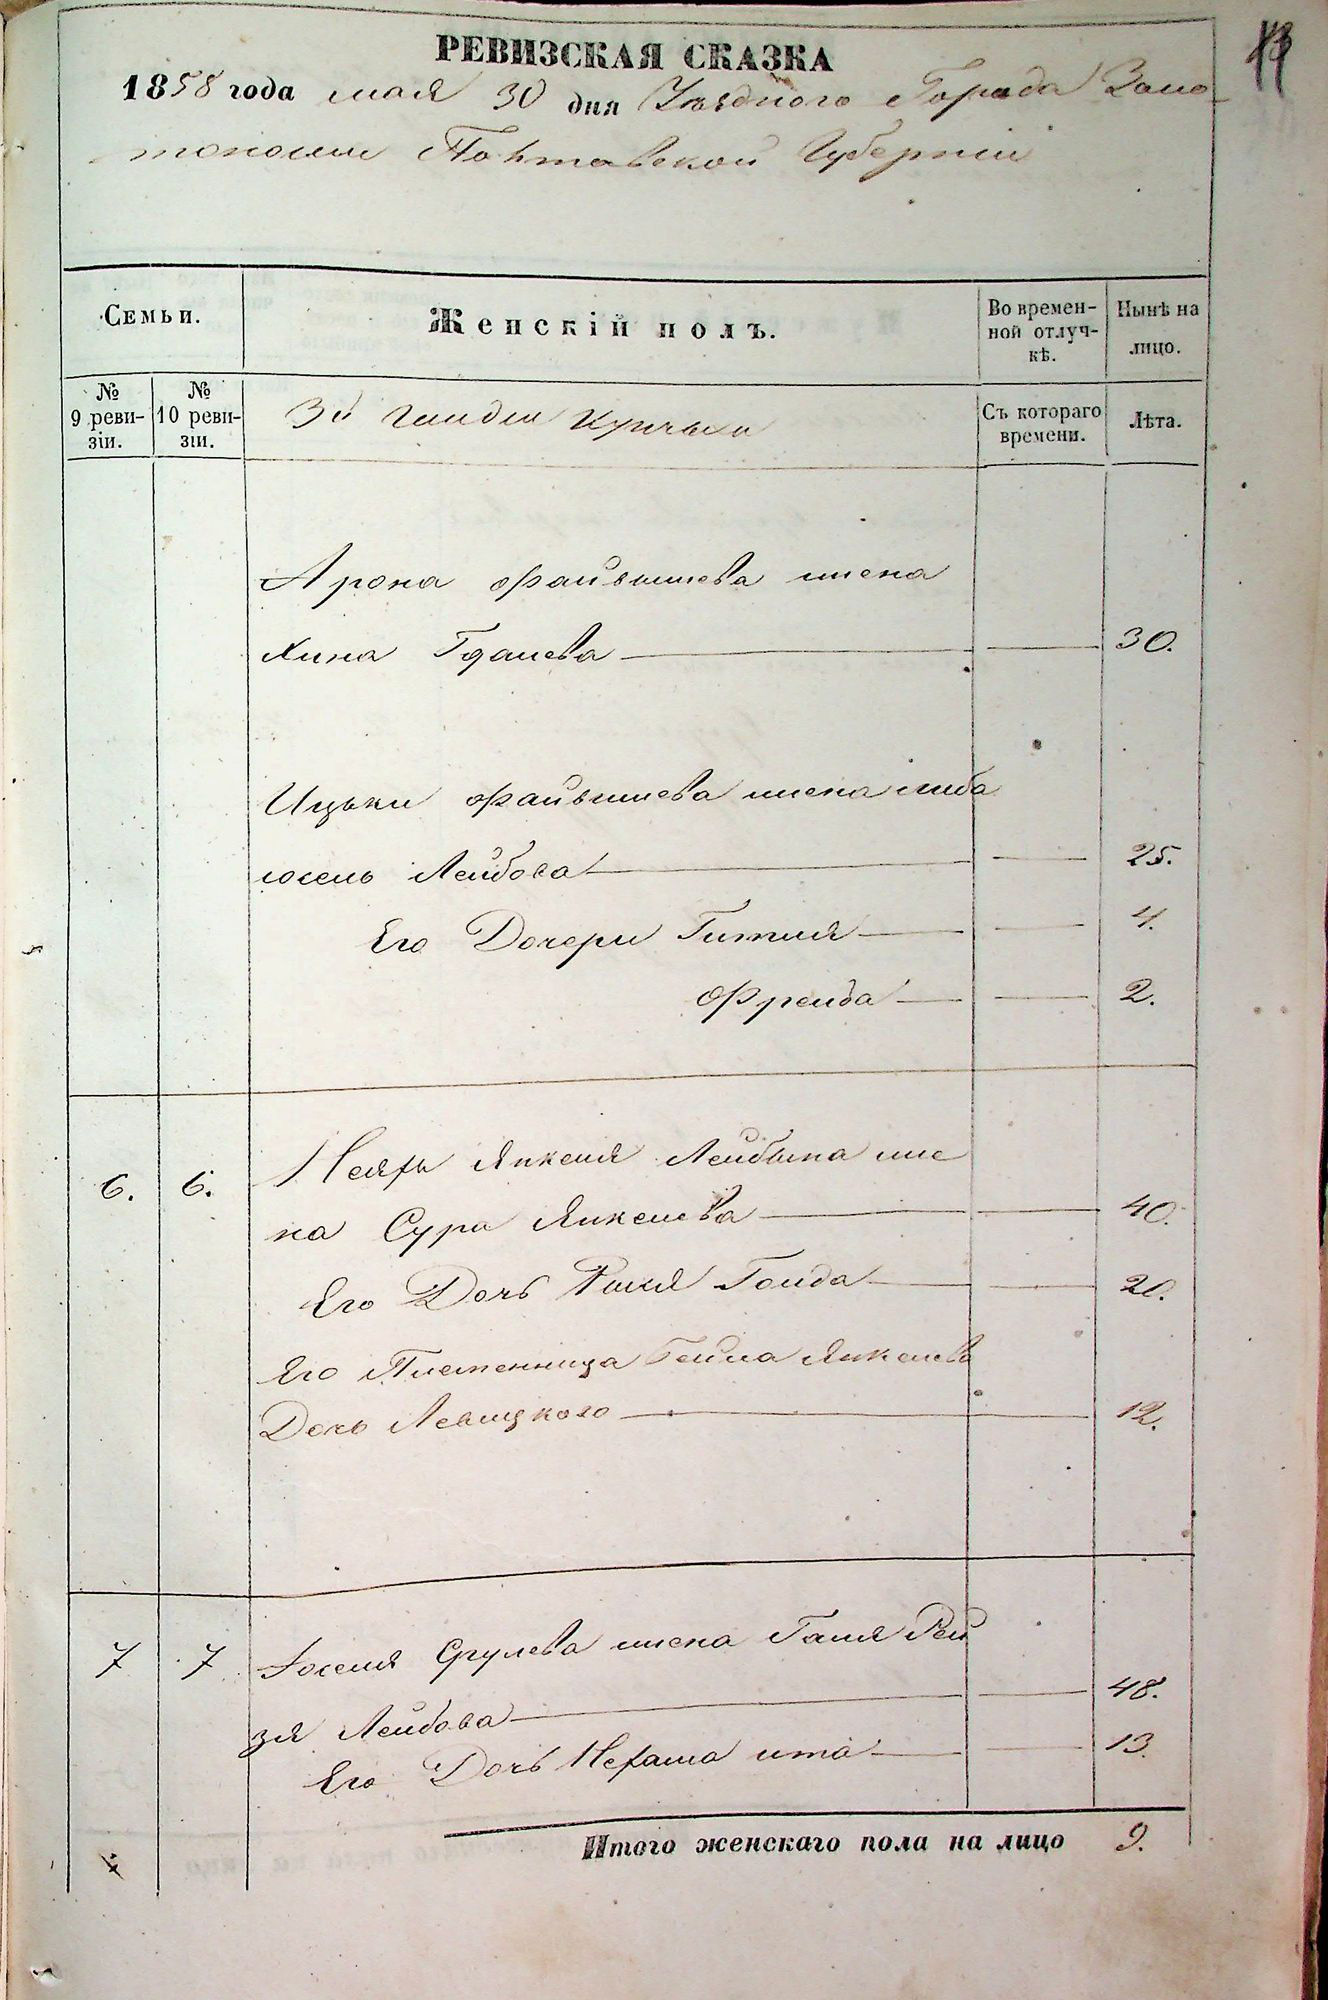 РЕВИЗСКАЯ СКАЗКА
1858 года мая 30 дня Уѣзднаго Города Золо-
тоноши Полтавской Губерніи
Семьи.
Женскій полъ.
Во времен-
ной отлуч-
кѣ.
Нынѣ на
лицо.
№
9 реви-
зіи.
№
10 реви-
зіи.
3й Гильдіи Купцы
Съ котораго
времени.
Лѣта.
Арона Файвышева жена
Хина Гдалева 30.
Ицьки Файвышева жена Либа
Лейбова 25.
Его Дочери Гитля 4.
Фрейда 2.
6. 6. Янкеля Лейбына же
на Сура Янкелева 40.
Его Дочь Голда 20.
Его Племенница Бейла Янкелева
Дочь Левицкого 12.
7 7 Іоселя Срулева жена Галя Рей
зя Лейбова 48.
Его Дочь Нехама ита 13.
Итого женскаго пола на лицо 9.